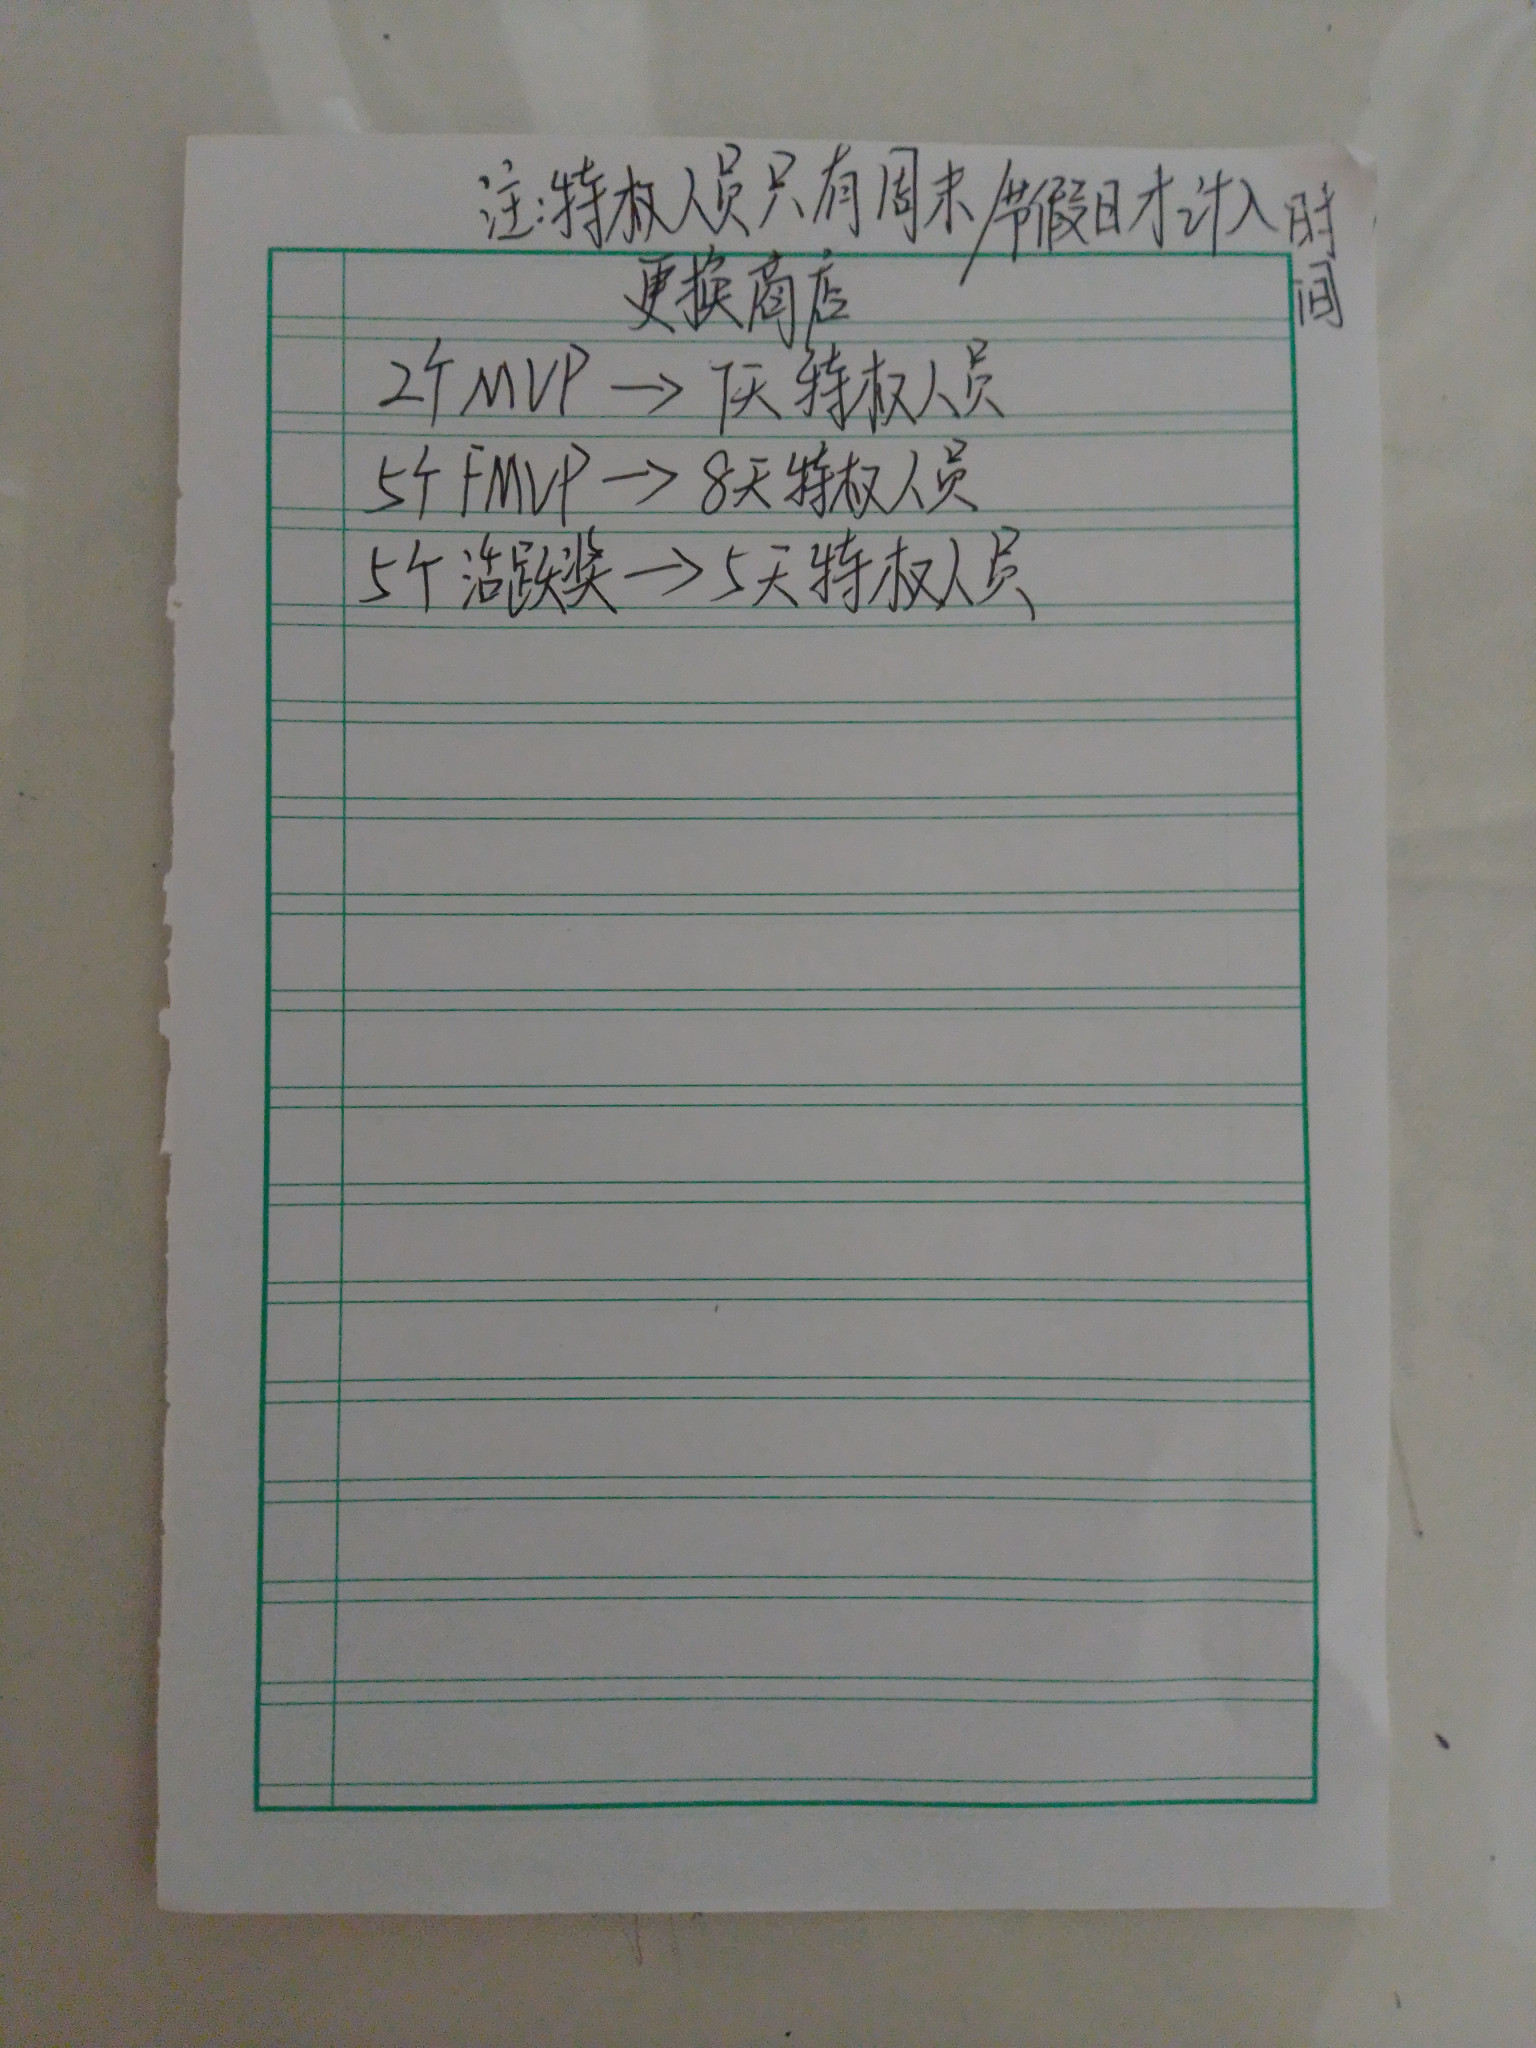 注:特权人员只有周末/节假日才计入时间
更换商店
2个MVP→1天特权人员
5个FMVP→8天特权人员
5个活跃奖→5天特权人员